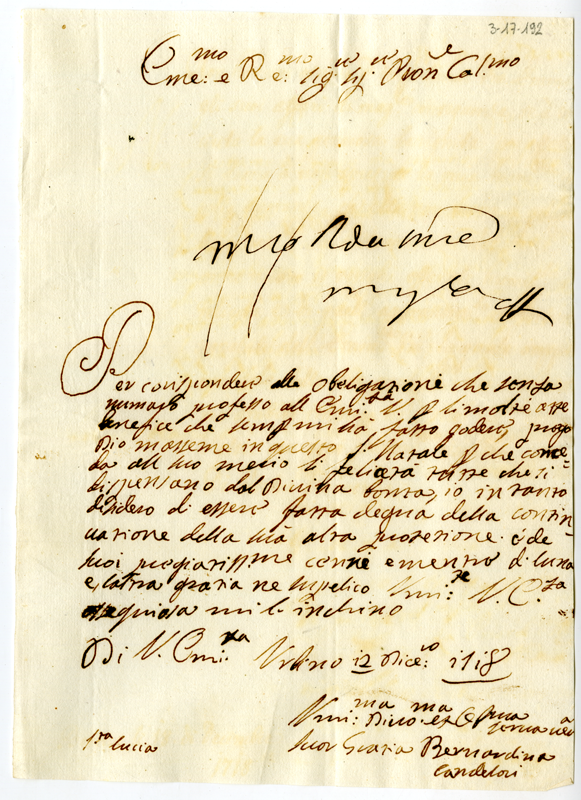 3-17-192
Eme:mo e Re:mo Sig:re Sig:re Pron:e Col:mo
Per corispondere alle obligazione che senza
numaro profeso all Emi:za V. p li molte
benefice che senp mi há fatto godere, prego
Dio masseme in questo S. Natale p che conce=
da all suo merio le felicità tutte che si
dispensano dal Divina bontà, io intanto
desidero di essere fatta degna della contin
uazione della Sua alta protezione e de
suoi pregiatiss:me cenni e mentre di luna
e, latra grazia ne supelico Vmi:te V. E:za
osequiosa mi li inchino
Di V. Emi:za Urbino 12 Dice:e 1718
Vmi:ma Divo:ma et
S:ta Lucia
Suor Grazia Bernardina
Candelori